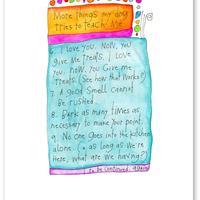 More things my dog
tries to teach me
6. I love you. Now, you
give me treats. I love
you. Now, you give me
treats. (See how that works?)
7. A good smell cannot
be rushed.
8. Bark as many times as
necessary to make your point.
9. No one goes into the kitchen
alone. & as long as we're
here, what are we having?
to be continued, again